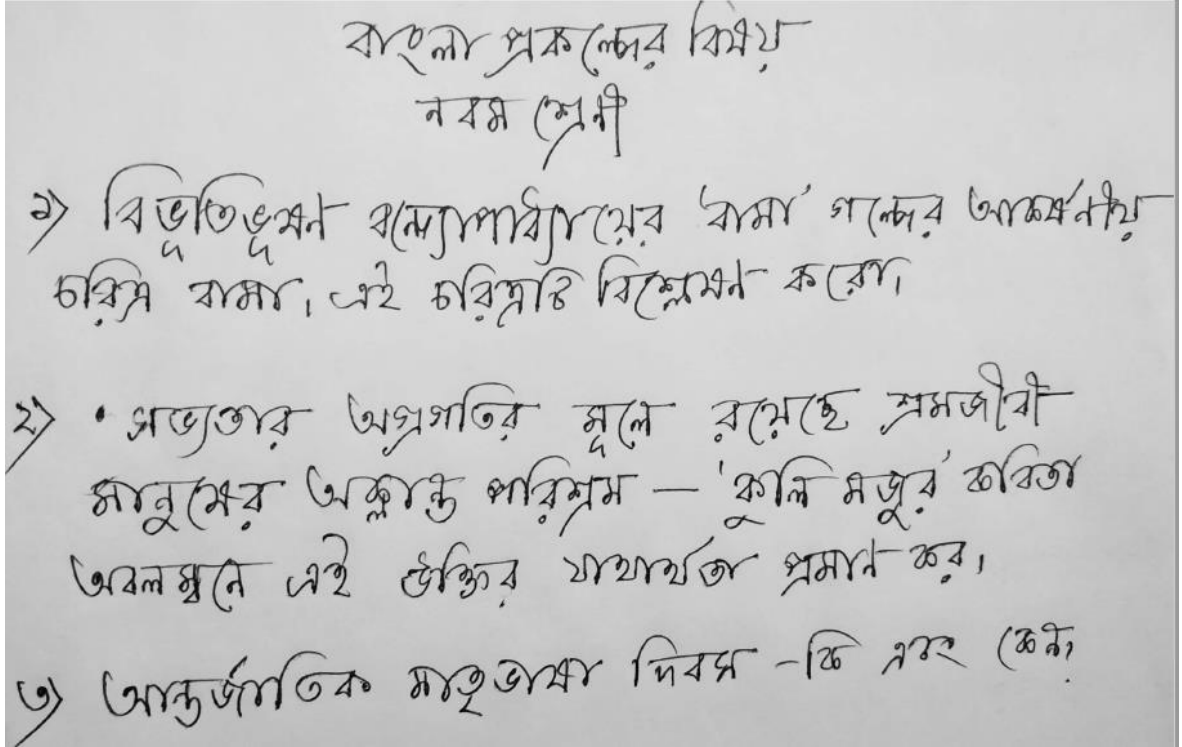 বাংলা প্রকল্পের বিষয়
নবম শ্রেনী
১) বিভূতিভূষণ বন্দ্যোপাধ্যায়ের 'বামা' গল্পের আকর্ষনীয়
চরিত্র বামা, এই চরিত্রটি বিশ্লেষণ করো।
২) • সভ্যতার অগ্রগতির মূলে রয়েছে শ্রমজীবী
মানুষের অক্লান্ত পরিশ্রম — 'কুলি মজুর' কবিতা
অবলম্বনে এই উক্তির যাথার্থতা প্রমাণ কর।
৩) আন্তর্জাতিক মাতৃভাষা দিবস - কি এবং কেন,